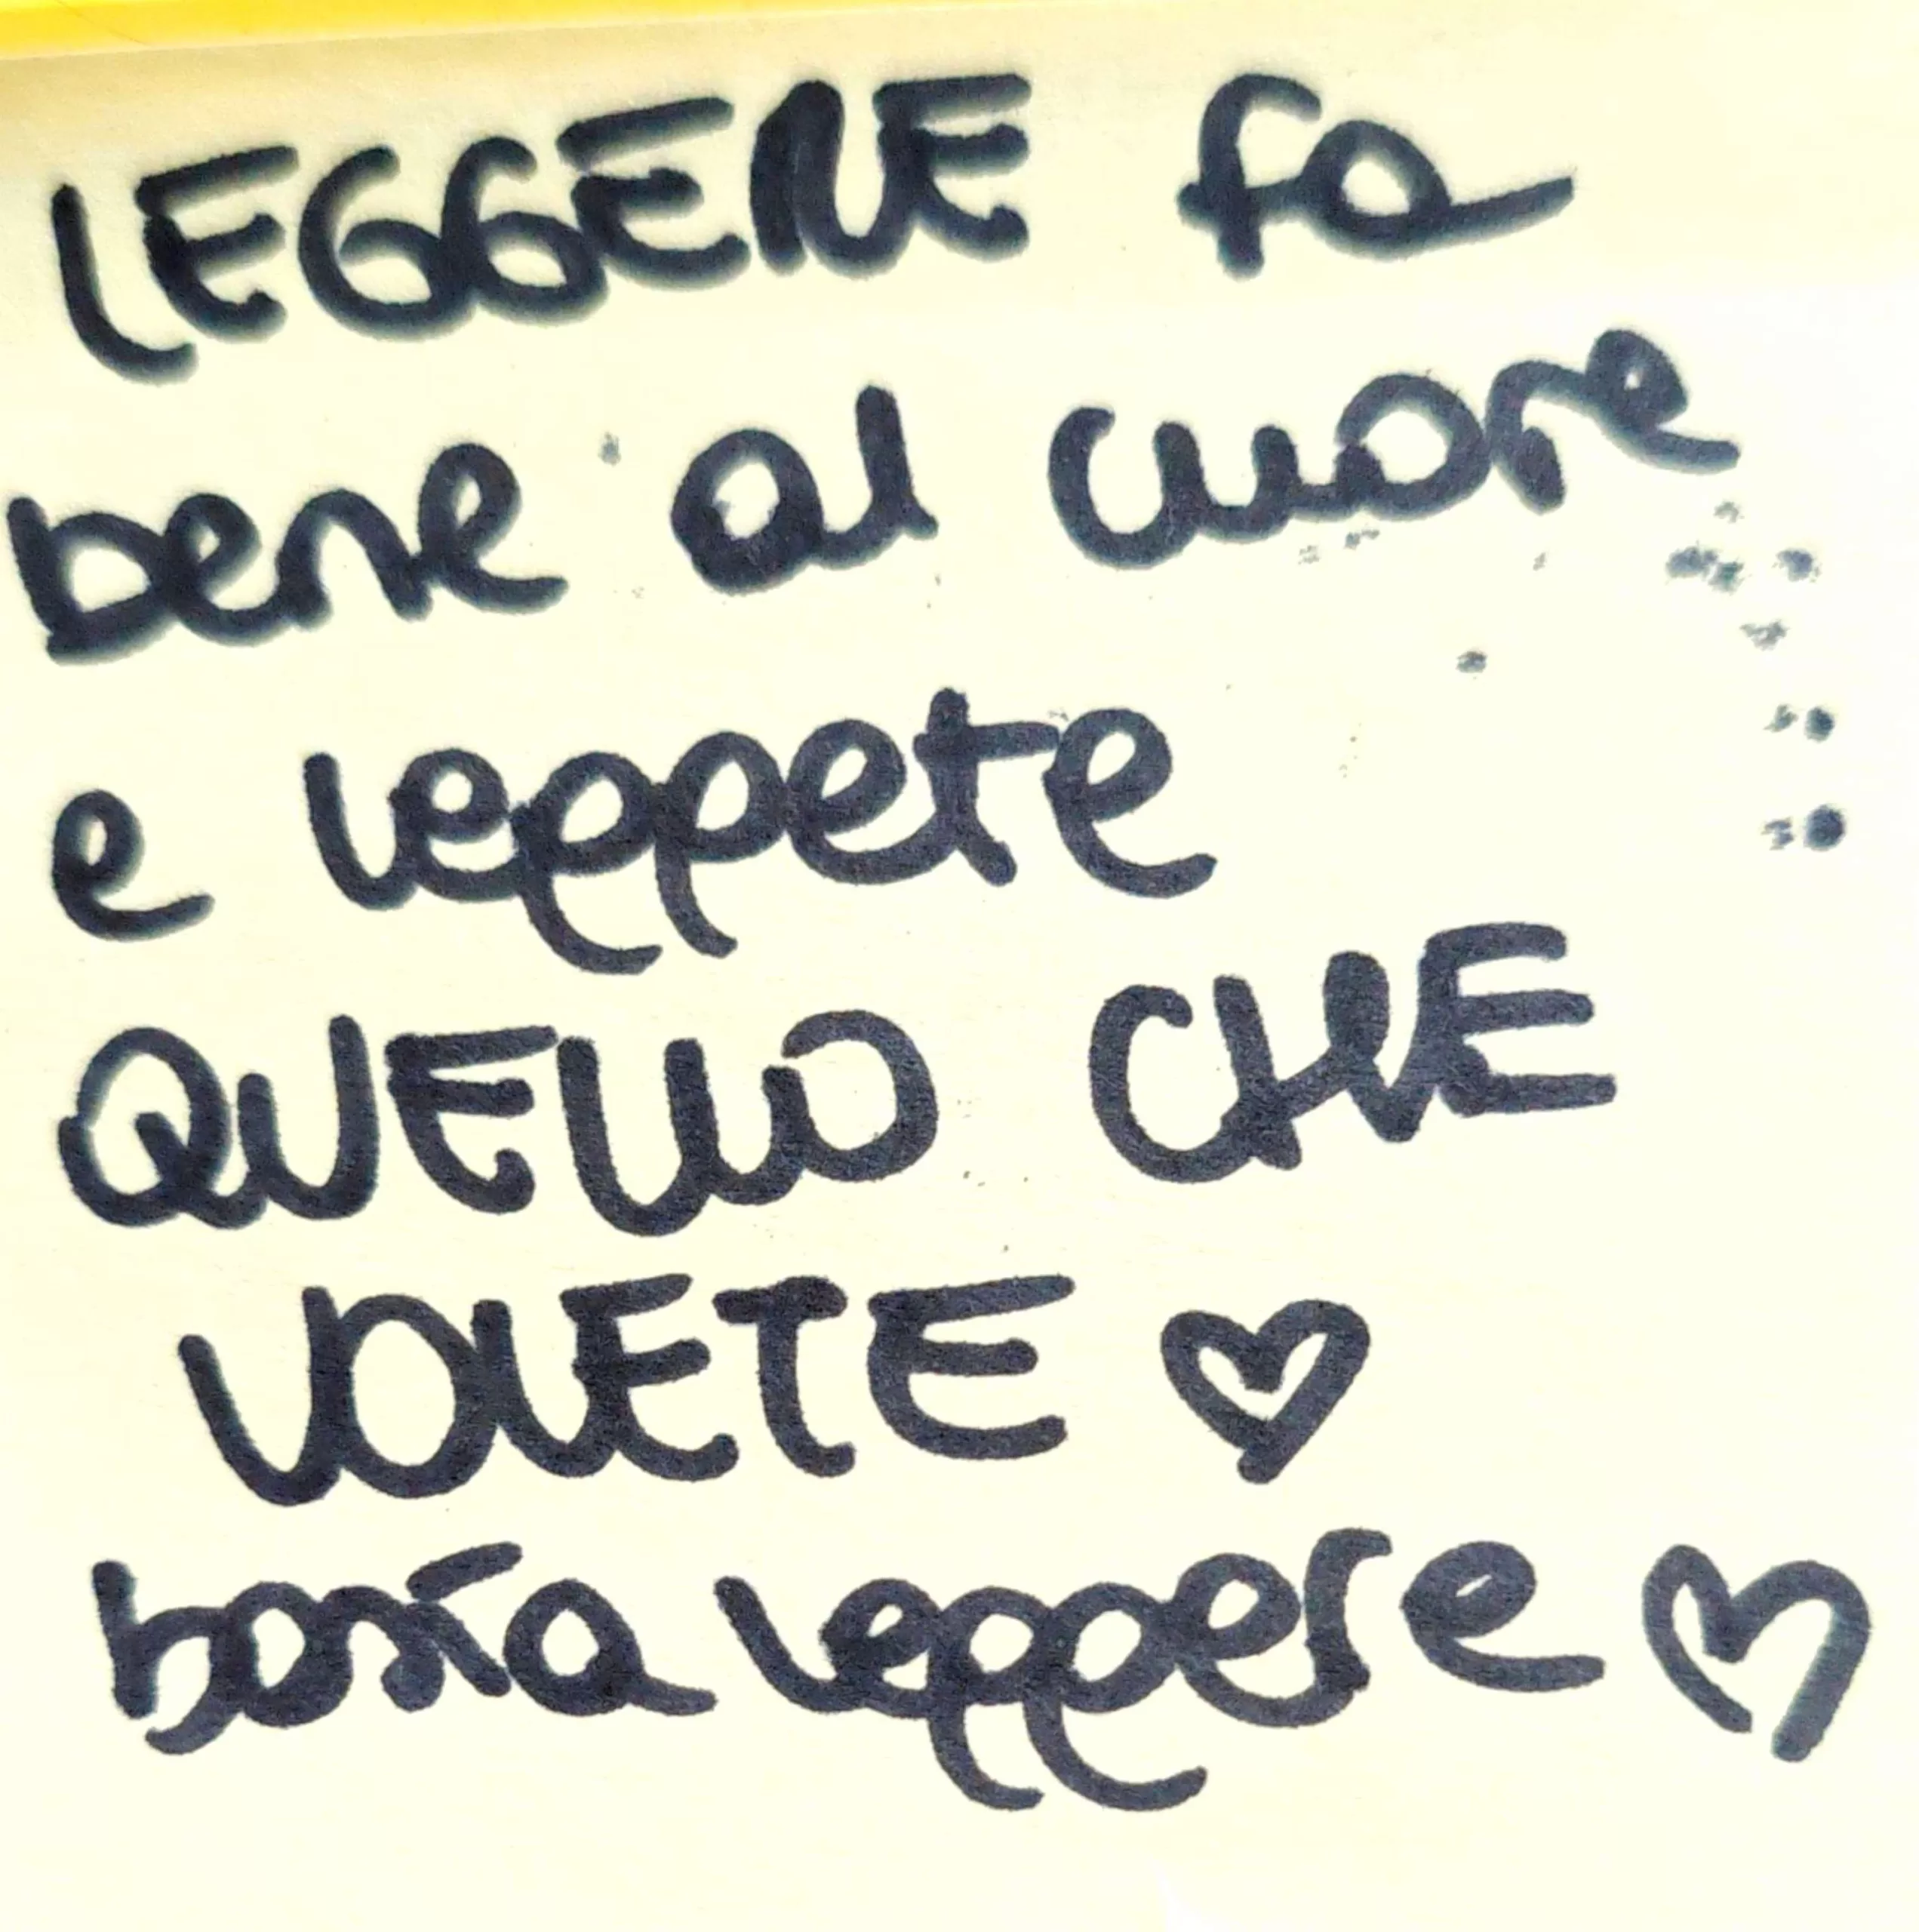 LEGGERE fa
bene al cuore
e leggete
QUELLO CHE
VOLETE ♡
basta leggere ♡